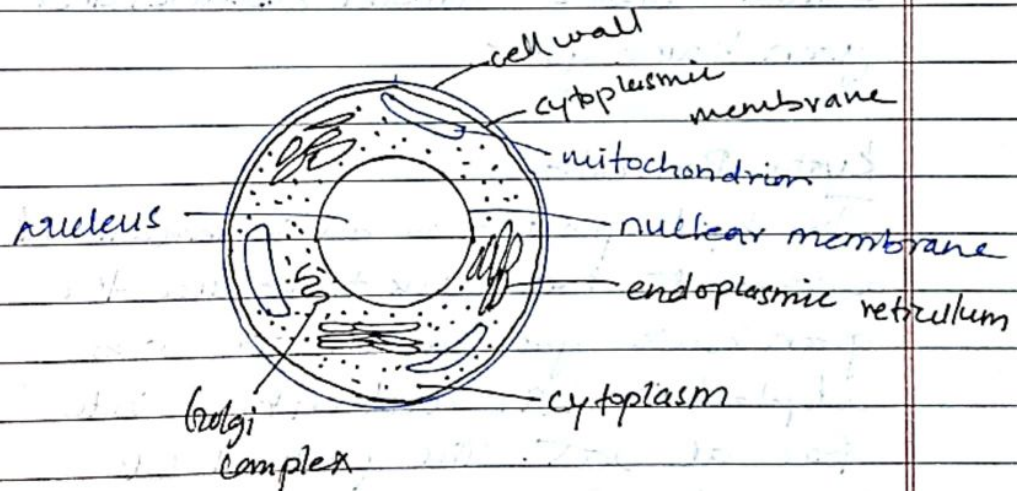 cell wall
cytoplasmic
membrane
mitochondrion
nucleus
nuclear membrane
endoplasmic reticullum
cytoplasm
Golgi
complex